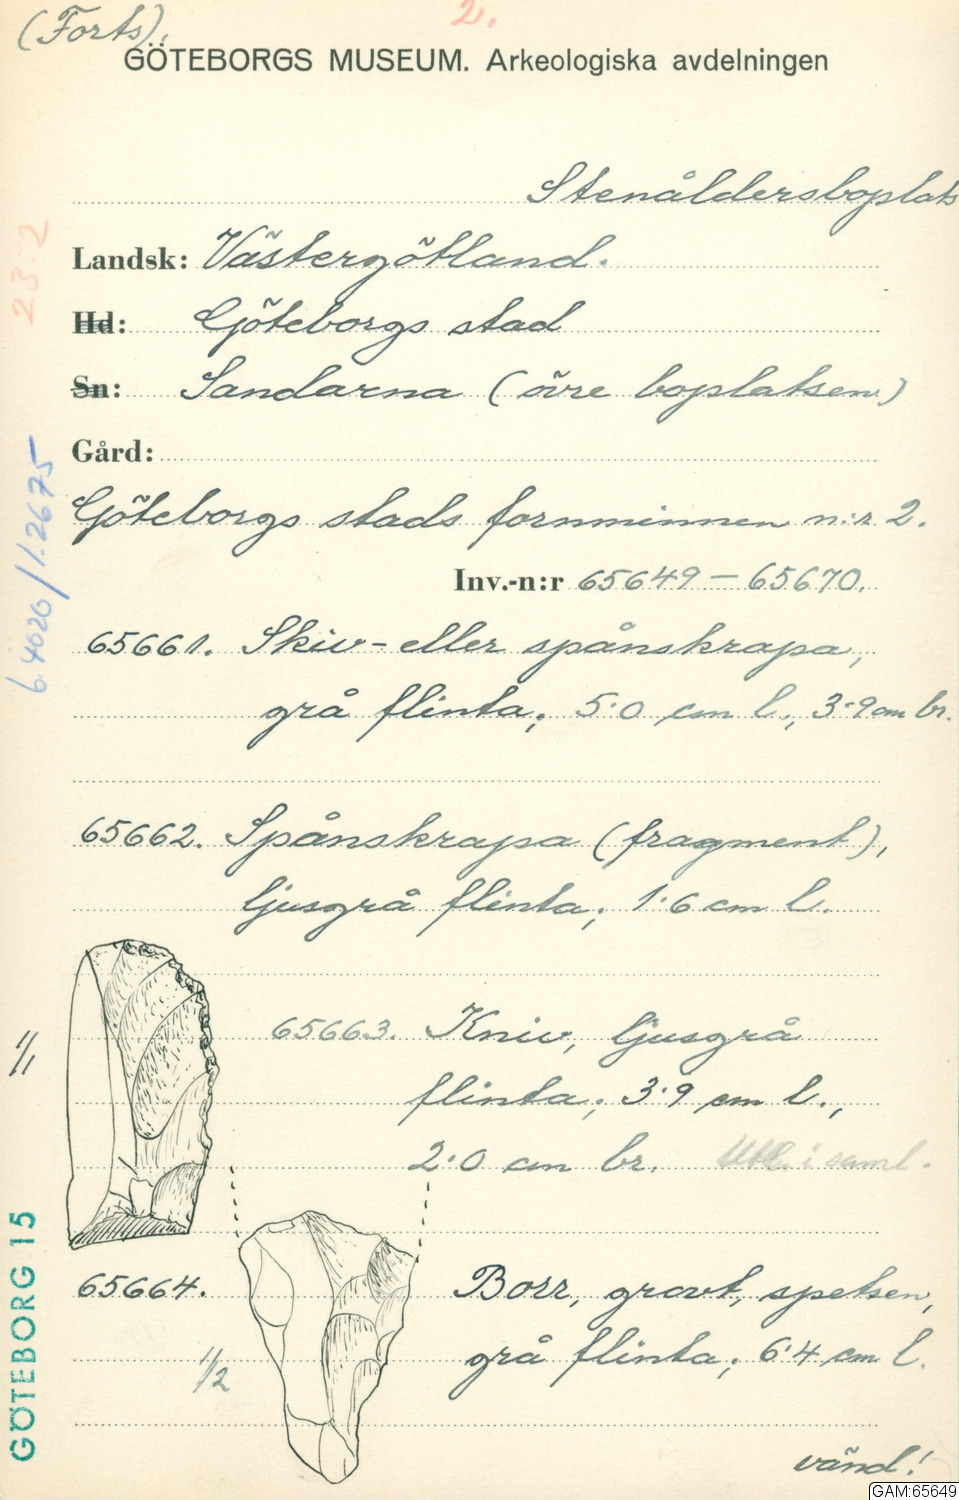 (Forts).
2.
GÖTEBORGS MUSEUM. Arkeologiska avdelningen
Stenåldersboplats
Landsk: Västergötland.
Hd: Göteborgs stad
Sn: Sandarna (övre boplatsen)
Gård:
Göteborgs stads fornminnen n:r 2.
Inv.-n:r 65649 – 65670.
65661. Skiv- eller spånskrapa,
grå flinta; 5·0 cm l., 3·9 cm br.
65662. Spånskrapa (fragment),
ljusgrå flinta; 1·6 cm l.
1/1
65663. Kniv, ljusgrå
flinta; 3·9 cm l.,
2·0 cm br. i saml.
65664. Borr, grovt, spetsen,
1/2
grå flinta; 6·4 cm l.
vänd!
23-2
6.4020/1.2675
GÖTEBORG 15
GAM:65649